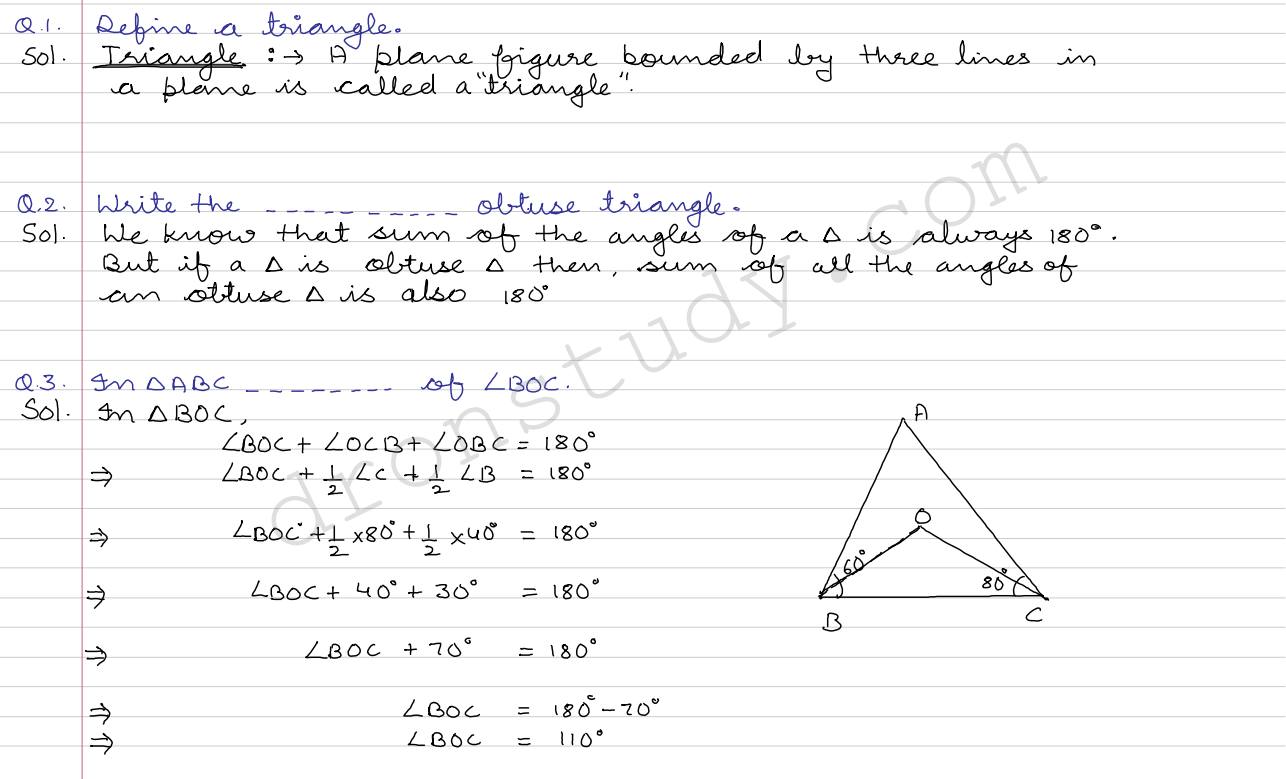 Q.1. Define a triangle.
Sol. Triangle :→ A plane figure bounded by three lines in
a plane is called a "triangle".
Q.2. Write the _ _ _ _ _ _ _ _ _ _ obtuse triangle.
Sol. We know that sum of the angles of a Δ is always 180°.
But if a Δ is obtuse Δ then, sum of all the angles of
an obtuse Δ is also 180°
Q.3. In ΔABC _ _ _ _ _ _ _ _ of ∠BOC.
Sol. In ΔBOC,
∠BOC + ∠OCB + ∠OBC = 180°
⇒ ∠BOC + 1/2 ∠C + 1/2 ∠B = 180°
⇒ ∠BOC + 1/2 ×80° + 1/2 ×40° = 180°
⇒ ∠BOC + 40° + 30° = 180°
⇒ ∠BOC + 70° = 180°
⇒ ∠BOC = 180° - 70°
⇒ ∠BOC = 110°
A
O
60°
80°
B
C
dronstudy.com